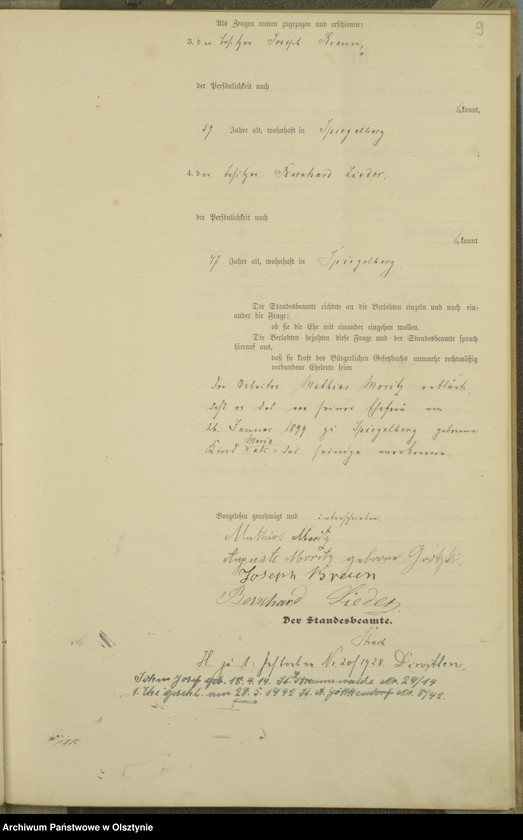 9
Als Zeugen waren zugezogen und erschienen:
3. der Besitzer Joseph
der Persönlichkeit nach
bekannt,
59 Jahre alt, wohnhaft in Spiegelberg
;
4. der Besitzer Bernhard Lieder.
der Persönlichkeit nach
bekannt
47 Jahre alt, wohnhaft in Spiegelberg.
Der Standesbeamte richtete an die Verlobten einzeln und nach ein-
ander die Frage:
ob sie die Ehe mit einander eingehen wollen.
Die Verlobten bejahten diese Frage und der Standesbeamte sprach
hierauf aus,
daß sie kraft des Bürgerlichen Gesetzbuchs nunmehr rechtmäßig
verbundene Eheleute seien
Der Arbeiter Mathias Moritz erklärt
daß er das von seiner Ehefrau am
26. Januar 1899 zu Spiegelberg geborene
Maria
Kind als das seinige anerkenne.
Vorgelesen genehmigt und unterschrieben.
Mathias Moritz
Auguste Moritz geborne
Joseph
Bernhard Lieder
Der Standesbeamte.
H. zu 1: Nr. 20/1928 Diwitten.
Sohn Josef geb. 18.4.14 St. A. Nr. 24/14
1. Ehe geschl. am 28.5.1942 St. A. Göttkendorf Nr. 8/42.
Archiwum Państwowe w Olsztynie